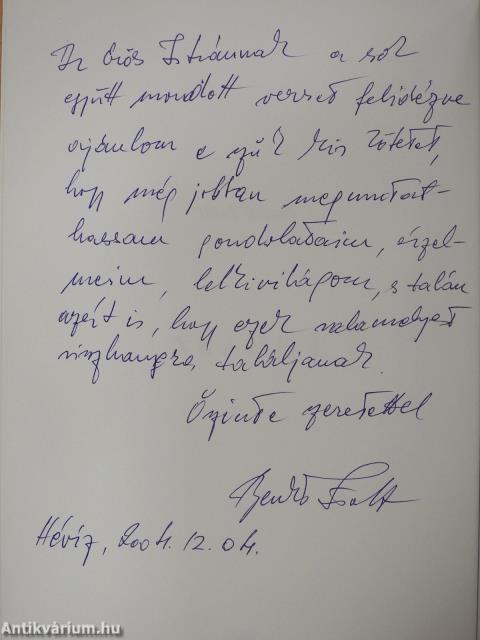 Dr Erős Istvánnak a sok
együtt mondott verset felidézve
ajánlom e szűk kis kötetet,
hogy még jobban megmutat-
hassam gondolataim, érzel-
meim, lelkivilágom, s talán
azért is, hogy ezek valamelyest
visszhangra találjanak.
Őszinte szeretettel
Zsolt
Hévíz, 2004. 12. 04.
Antikvárium.hu